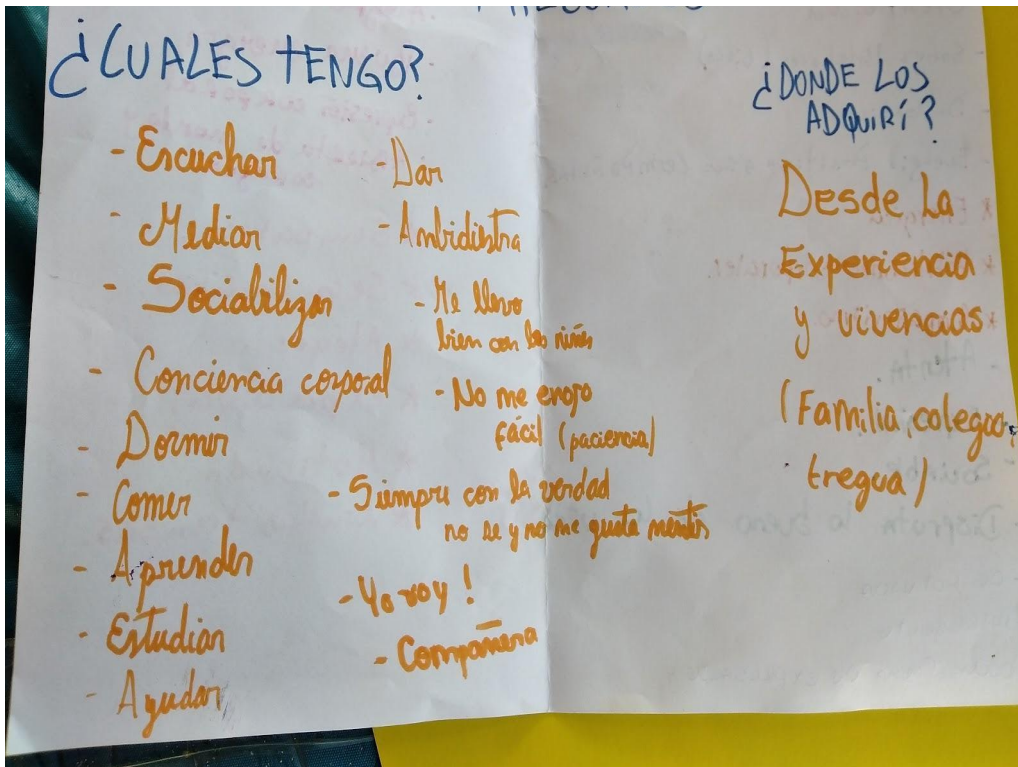 ¿CUALES TENGO?
- Escuchar
- Mediar
- Sociabilizar
- Conciencia corporal
- Dormir
- Comer
- Aprender
- Estudiar
- Ayudar
- Dar
- Ambidiestra
- Me llevo
bien con los niños
- No me enojo
fácil (paciencia)
- Siempre con la verdad
no se y no me gusta mentir
- Yo voy !
- Compañera
¿DONDE LOS
ADQUIRÍ?
Desde La
Experiencia
y vivencias
(Familia, colegao,
tregua)